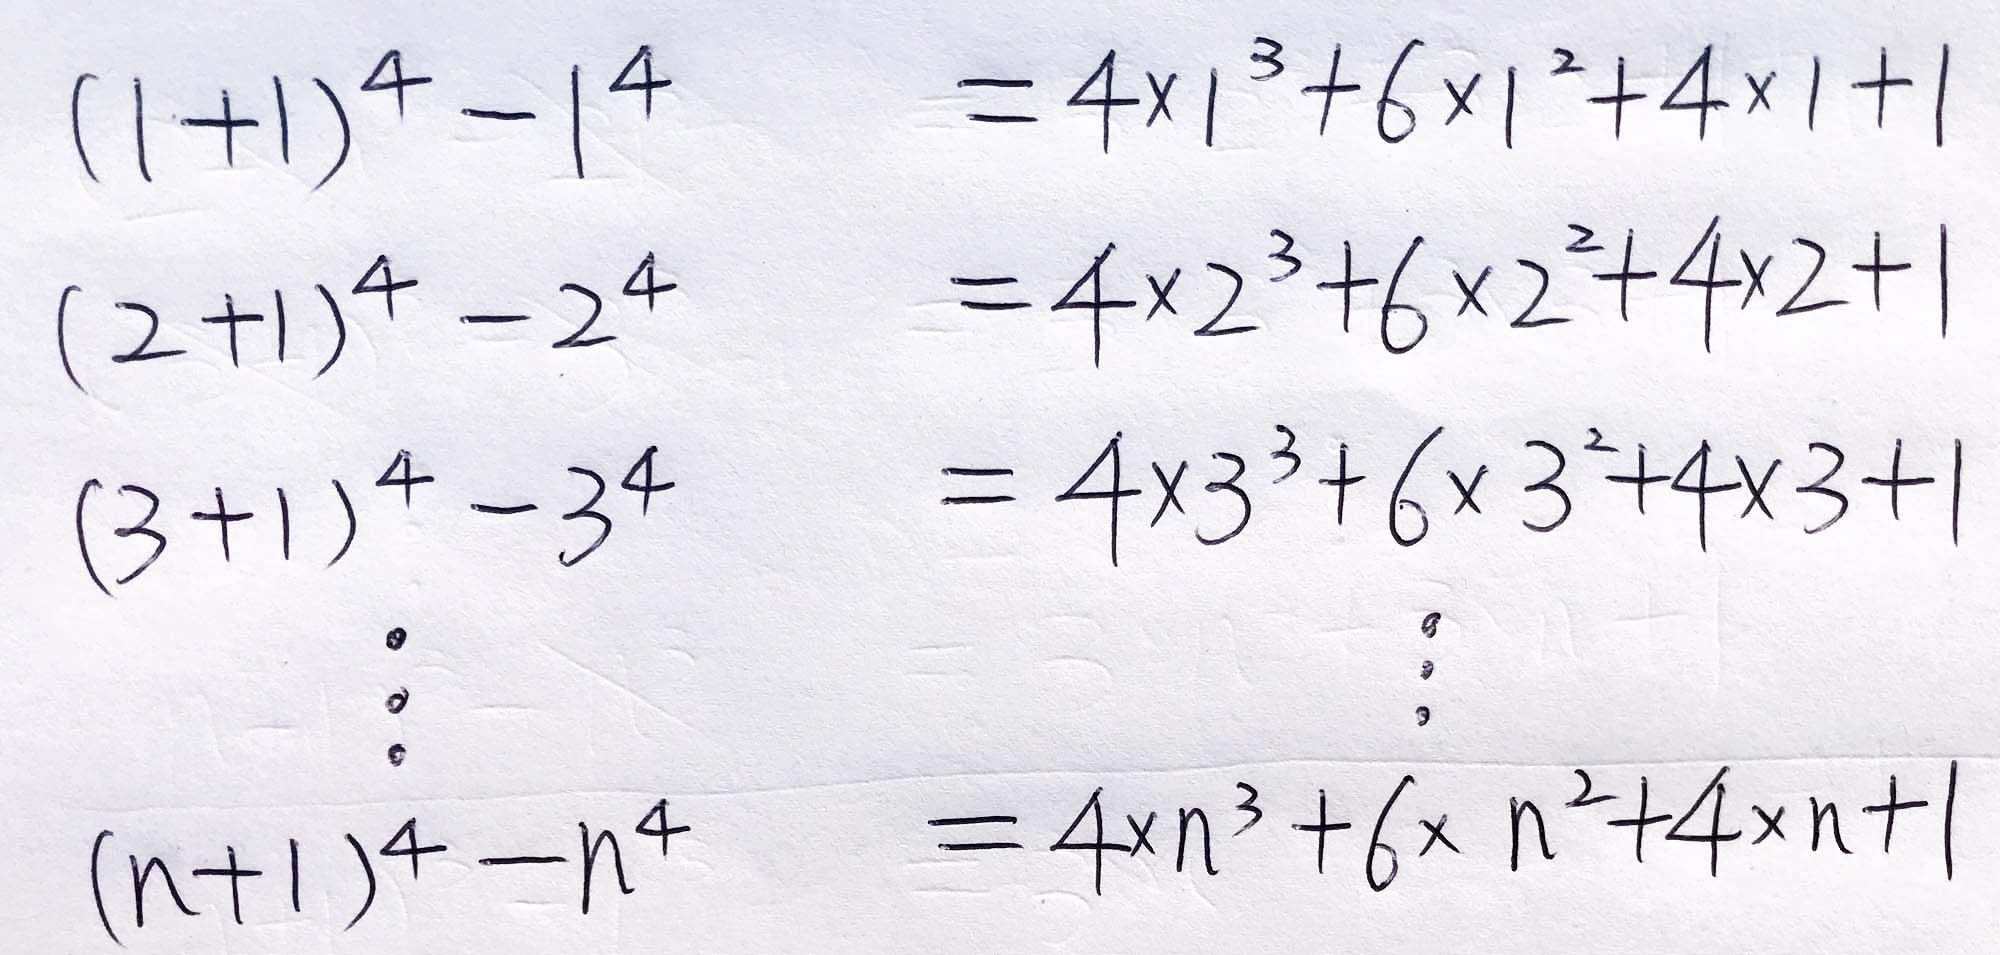 (1+1)⁴ - 1⁴ = 4×1³+6×1²+4×1+1
(2+1)⁴ - 2⁴ = 4×2³+6×2²+4×2+1
(3+1)⁴ - 3⁴ = 4×3³+6×3²+4×3+1
⋮ ⋮
(n+1)⁴ - n⁴ = 4×n³+6×n²+4×n+1